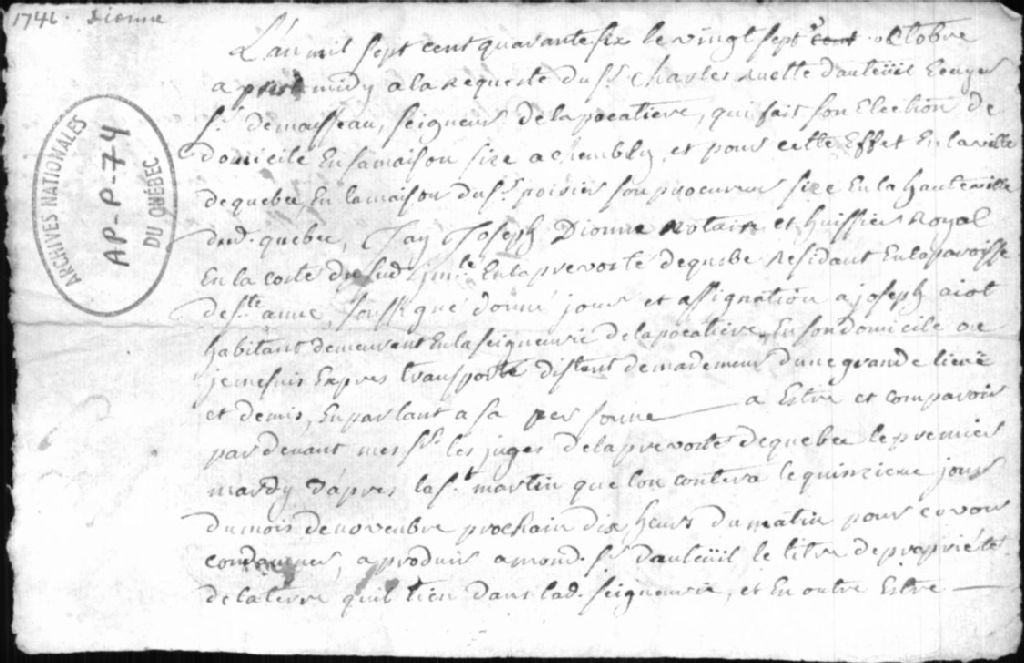 1746. Dionne
ARCHIVES NATIONALES
AP-P-74
DU QUÉBEC
L'an mil sept cent quarante six le vingt sept e cent octobre
apres midy a la Requeste du Sr. Charles Ruette dauteüil Ecuyer
Sr. demonsseau, seigneur de la pocatiere, qui fait son Election de
domicile En sa maison size a chambly, et pour cette Effet En la ville
de quebec En la maison du Sr. poirier son procureur size En la haute ville
dud. quebec, Jay Joseph Dionne Notaire et huissier Royal
En la coste du Sud En la prevosté de quebec Residant En la paroisse
de Ste anne, soussigné donné jour et assignation a joseph aiot
habitant demeurant En la seigneurie de la pocatiere, En son domicile ou
je me suis Expres transporté distent de ma demeure dune grande lieuë
et demis, En parlant a sa personne a Estre et comparoir
par devant mes Srs. les juges de la prevosté de quebec le premier
mardy d'apres la St. martin que lon contera le quinzieme jour
du mois de novembre prochain dix heurs du matin pour ce voir
condamner, a produire a mond. Sr. dauteüil le titre de proprieté
de la terre quil tien dans lad. seigneurie, et En outre Estre